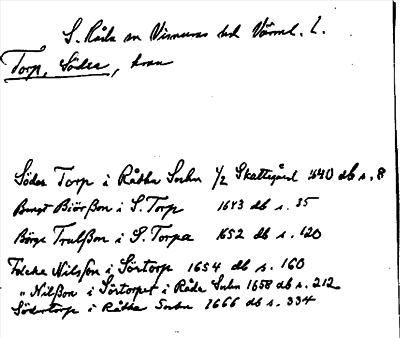 S. Råda sn Visnums hd Värml. l.
Torp, Söder,
Söder Torp i Rådha Sochn 1/2 Skattegård 1640 db s. 8
Bengt Biörßon i S. Torp 1643 db s. 35
Börge Trulßon i S. Torpa 1652 db s. 120
Nilsson i Sörtorp 1654 db s. 160
" Nilßon i Sörtorpet i Råda Sochn 1658 db s. 212
Södertorp i Rådha Sochn 1666 db s. 334